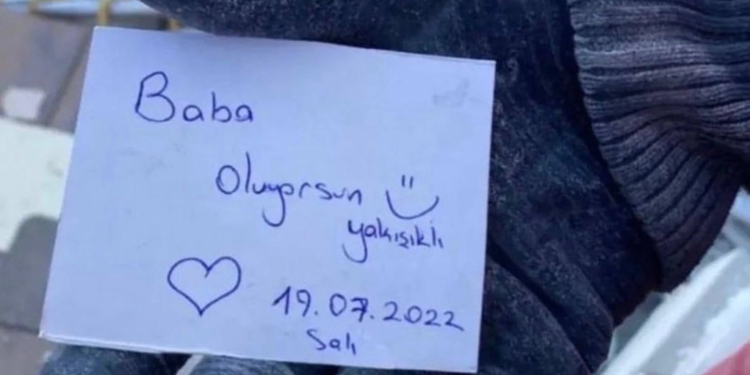 Baba
Oluyorsun
yakışıklı
19.07.2022
Salı